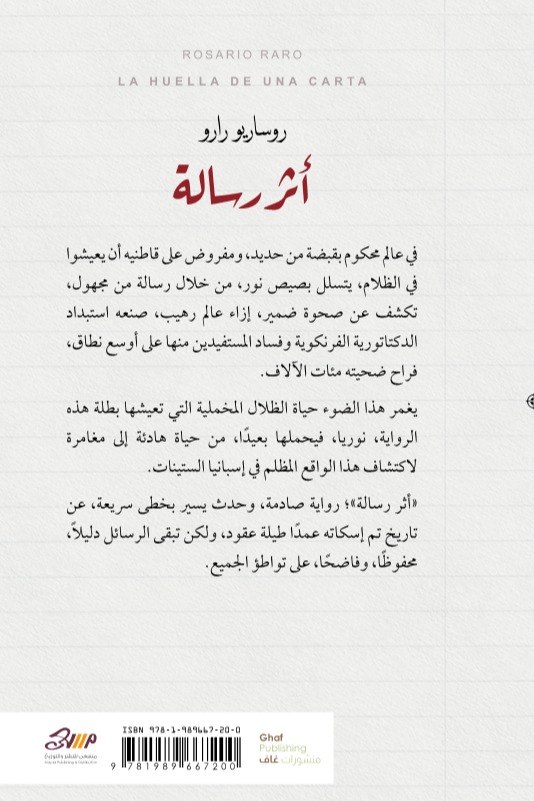 ROSARIO RARO
LA HUELLA DE UNA CARTA
روساريو رارو
أثر رسالة
في عالم محكوم بقبضة من حديد، ومفروض على قاطنيه أن يعيشوا
في الظلام، يتسلل بصيص نور، من خلال رسالة من مجهول،
تكشف عن صحوة ضمير، إزاء عالم رهيب، صنعه استبداد
الدكتاتورية الفرنكوية وفساد المستفيدين منها على أوسع نطاق،
فراح ضحيته مئات الآلاف.
يغمر هذا الضوء حياة الظلال المخملية التي تعيشها بطلة هذه
الرواية، نوريا، فيحملها بعيدًا، من حياة هادئة إلى مغامرة
لاكتشاف هذا الواقع المظلم في إسبانيا الستينات.
«أثر رسالة»؛ رواية صادمة، وحدث يسير بخطى سريعة، عن
تاريخ تم إسكاته عمدًا طيلة عقود، ولكن تبقى الرسائل دليلاً،
محفوظًا، وفاضحًا، على تواطؤ الجميع.
ISBN 978-1-989667-20-0
9 781989 667200
Ghaf
Publishing
منشورات غاف